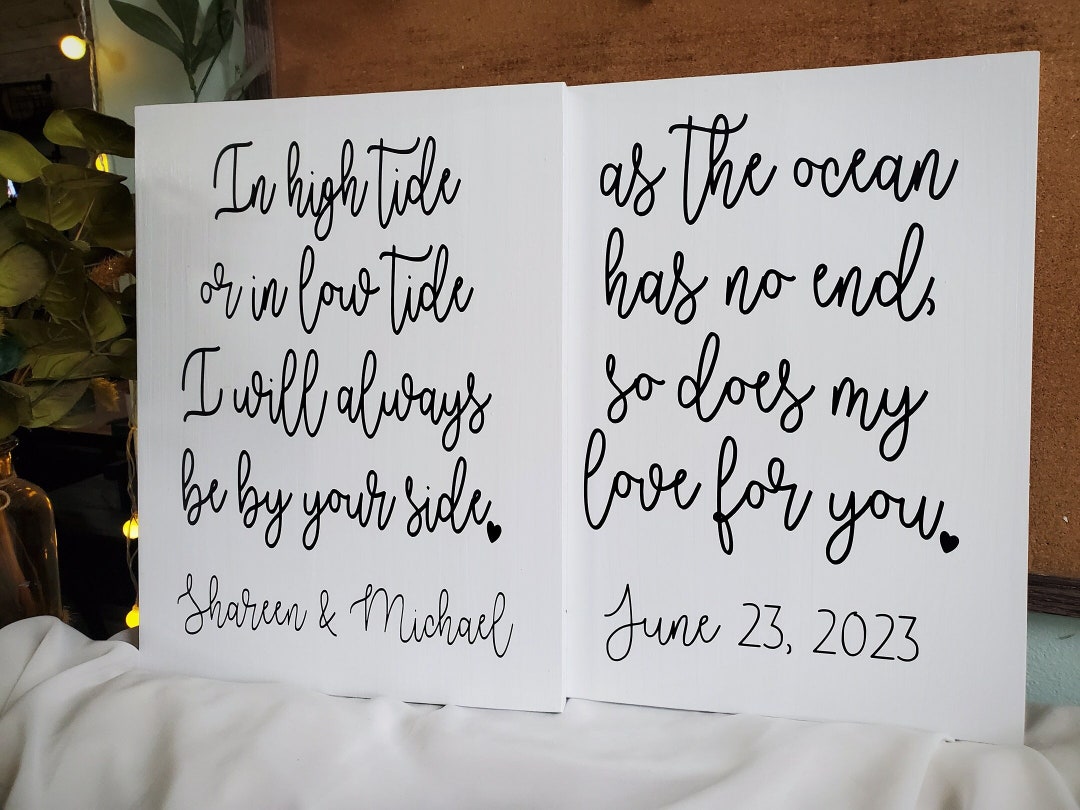 In high tide
or in low tide
I will always
be by your side.
Shareen & Michael
as the ocean
has no end,
so does my
love for you.
June 23, 2023